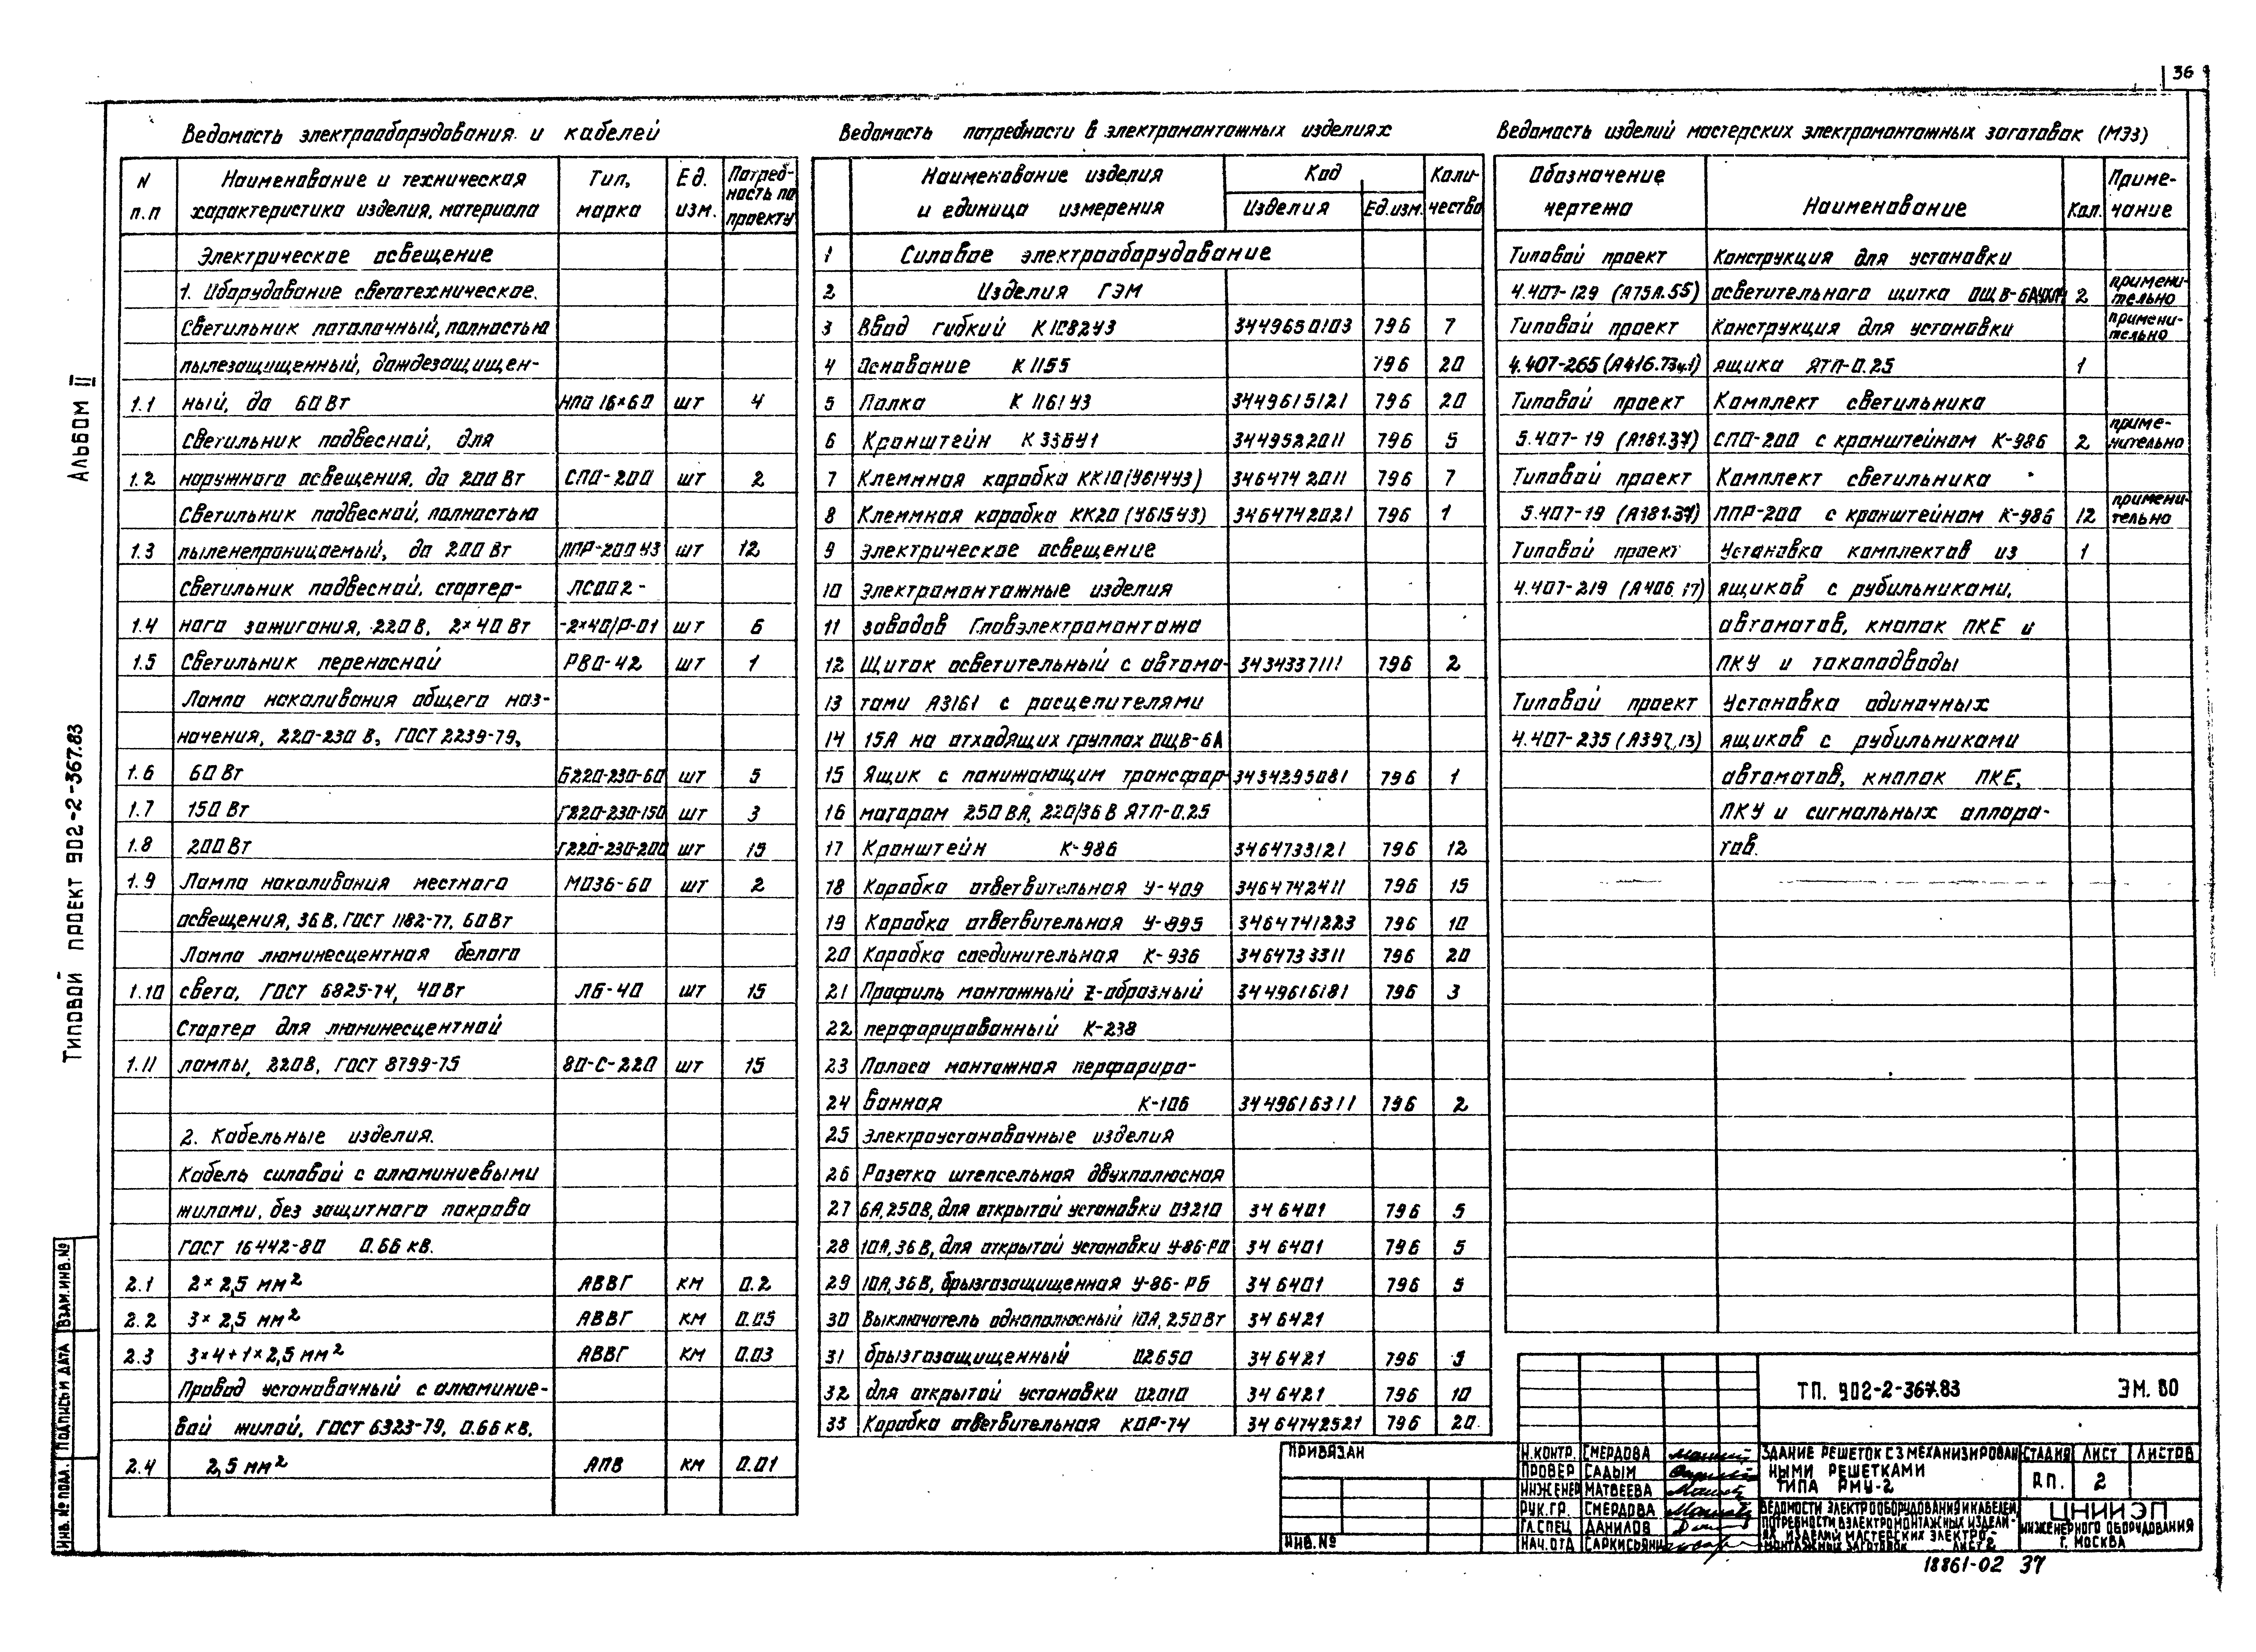 36
Ведомость электрооборудования и кабелей
N п.п | Наименование и техническая характеристика изделия, материала | Тип, марка | Ед. изм. | Потребность по проекту
Электрическое освещение
1. Оборудование светотехническое.
Светильник потолочный, полностью
пылезащищенный, дождезащищен-
1.1 ный, до 60 Вт НПО 16×60 шт 4
Светильник подвесной, для
1.2 наружного освещения, до 200 Вт СПО-200 шт 2
Светильник подвесной, полностью
1.3 пыленепроницаемый, до 200 Вт ППР-200 У3 шт 12
Светильник подвесной, стартер- ЛСОО2-
1.4 ного зажигания, 220 В, 2×40 Вт -2×40/Р-01 шт 6
1.5 Светильник переносной РВО-42 шт 1
Лампа накаливания общего наз-
начения, 220-230 В, ГОСТ 2239-79,
1.6 60 Вт Б220-230-60 шт 5
1.7 150 Вт Г220-230-150 шт 3
1.8 200 Вт Г220-230-200 шт 15
1.9 Лампа накаливания местного МО36-60 шт 2
освещения, 36 В, ГОСТ 1182-77, 60 Вт
Лампа люминесцентная белого
1.10 света, ГОСТ 6825-74, 40 Вт ЛБ-40 шт 15
Стартер для люминесцентной
1.11 лампы, 220 В, ГОСТ 8799-75 80-С-220 шт 15
2. Кабельные изделия.
Кабель силовой с алюминиевыми
жилами, без защитного покрова
ГОСТ 16442-80 0.66 кВ.
2.1 2×2,5 мм² АВВГ км 0.2
2.2 3×2,5 мм² АВВГ км 0.05
2.3 3×4+1×2,5 мм² АВВГ км 0.03
Провод установочный с алюминие-
вой жилой, ГОСТ 6323-79, 0.66 кВ,
2.4 2,5 мм² АПВ км 0.01
Ведомость потребности в электромонтажных изделиях
Наименование изделия и единица измерения | Код Изделия | Ед.изм. | Количество
1 Силовое электрооборудование
2 Изделия ГЭМ
3 Ввод гибкий К1082У3 3449650103 796 7
4 Основание К1155 796 20
5 Полка К1161У3 3449615121 796 20
6 Кронштейн 3449522011 796 5
7 Клеммная коробка КК10 (У614У3) 3464742011 796 7
8 Клеммная коробка КК20 (У615У3) 3464742021 796 1
9 Электрическое освещение
10 Электромонтажные изделия
11 заводов Главэлектромонтажа
12 Щиток осветительный с автома- 3434337111 796 2
13 тами А3161 с расцепителями
14 15А на отходящих группах ОЩВ-6А
15 Ящик с понижающим трансфор- 3434295081 796 1
16 матором 250 ВА, 220/36 В ЯТП-0.25
17 Кронштейн К-986 3464733121 796 12
18 Коробка ответвительная У-409 3464742411 796 15
19 Коробка ответвительная У-995 3464741223 796 10
20 Коробка соединительная К-936 3464733311 796 20
21 Профиль монтажный Z-образный 3449616181 796 3
22 перфорированный К-238
23 Полоса монтажная перфориро-
24 ванная К-106 3449616311 796 2
25 Электроустановочные изделия
26 Розетка штепсельная двухполюсная
27 6А, 250В, для открытой установки 03210 34 6401 796 5
28 10А, 36В, для открытой установки У-86-РО 34 6401 796 5
29 10А, 36В, брызгозащищенная У-86-РБ 34 6401 796 5
30 Выключатель однополюсный 10А, 250Вт 34 6421
31 брызгозащищенный 02650 34 6421 796 5
32 для открытой установки 02010 34 6421 796 10
33 Коробка ответвительная КОР-74 3464742521 796 20
Ведомость изделий мастерских электромонтажных заготовок (МЭЗ)
Обозначение чертежа | Наименование | Кол. | Примечание
Типовой проект Конструкция для установки
4.407-129 (А75А.55) осветительного щитка ОЩВ-6АУХЛ4 2 применительно
Типовой проект Конструкция для установки применительно
4.407-265 (А416.73ч.1) ящика ЯТП-0.25 1
Типовой проект Комплект светильника
5.407-19 (А181.37) СПО-200 с кронштейном К-986 2 применительно
Типовой проект Комплект светильника
5.407-19 (А181.37) ППР-200 с кронштейном К-986 12 применительно
Типовой проект Установка комплектов из 1
4.407-219 (А406.17) ящиков с рубильниками,
автоматов, кнопок ПКЕ и
ПКУ и токоподводы
Типовой проект Установка одиночных
4.407-235 (А397.13) ящиков с рубильниками
автоматов, кнопок ПКЕ,
ПКУ и сигнальных аппара-
тов.
АЛЬБОМ II
ТИПОВОЙ ПРОЕКТ 902-2-367.83
ВЗАМ.ИНВ.№
ПОДПИСЬ И ДАТА
ИНВ.№ ПОДЛ.
ПРИВЯЗАН
ИНВ.№
ТП. 902-2-367.83 ЭМ. ВО
Н.КОНТР. СМЕРДОВА
ПРОВЕР САДЫМ
ИНЖЕНЕР МАТВЕЕВА
РУК.ГР. СМЕРДОВА
ГЛ.СПЕЦ ДАНИЛОВ
НАЧ.ОТД САРКИСЬЯНЦ
ЗДАНИЕ РЕШЕТОК С 3 МЕХАНИЗИРОВАН
НЫМИ РЕШЕТКАМИ
ТИПА РМУ-2
СТАДИЯ ЛИСТ ЛИСТОВ
Р.П. 2
ВЕДОМОСТИ ЭЛЕКТРООБОРУДОВАНИЯ И КАБЕЛЕЙ,
ПОТРЕБНОСТИ В ЭЛЕКТРОМОНТАЖНЫХ ИЗДЕЛИ-
ЯХ ИЗДЕЛИЙ МАСТЕРСКИХ ЭЛЕКТРО-
МОНТАЖНЫХ ЗАГОТОВОК ЛИСТ 2
ЦНИИЭП
ИНЖЕНЕРНОГО ОБОРУДОВАНИЯ
Г. МОСКВА
18861-02 37